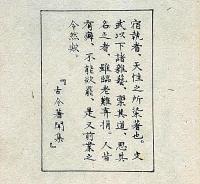 宿執者、天性之所染著也。文
武以下諸雜藝、稟其道、思其
名之者、雖臨老難弃捐。人皆
有癖、不能改罷、是又前業之
令然歟。
『古今著聞集』